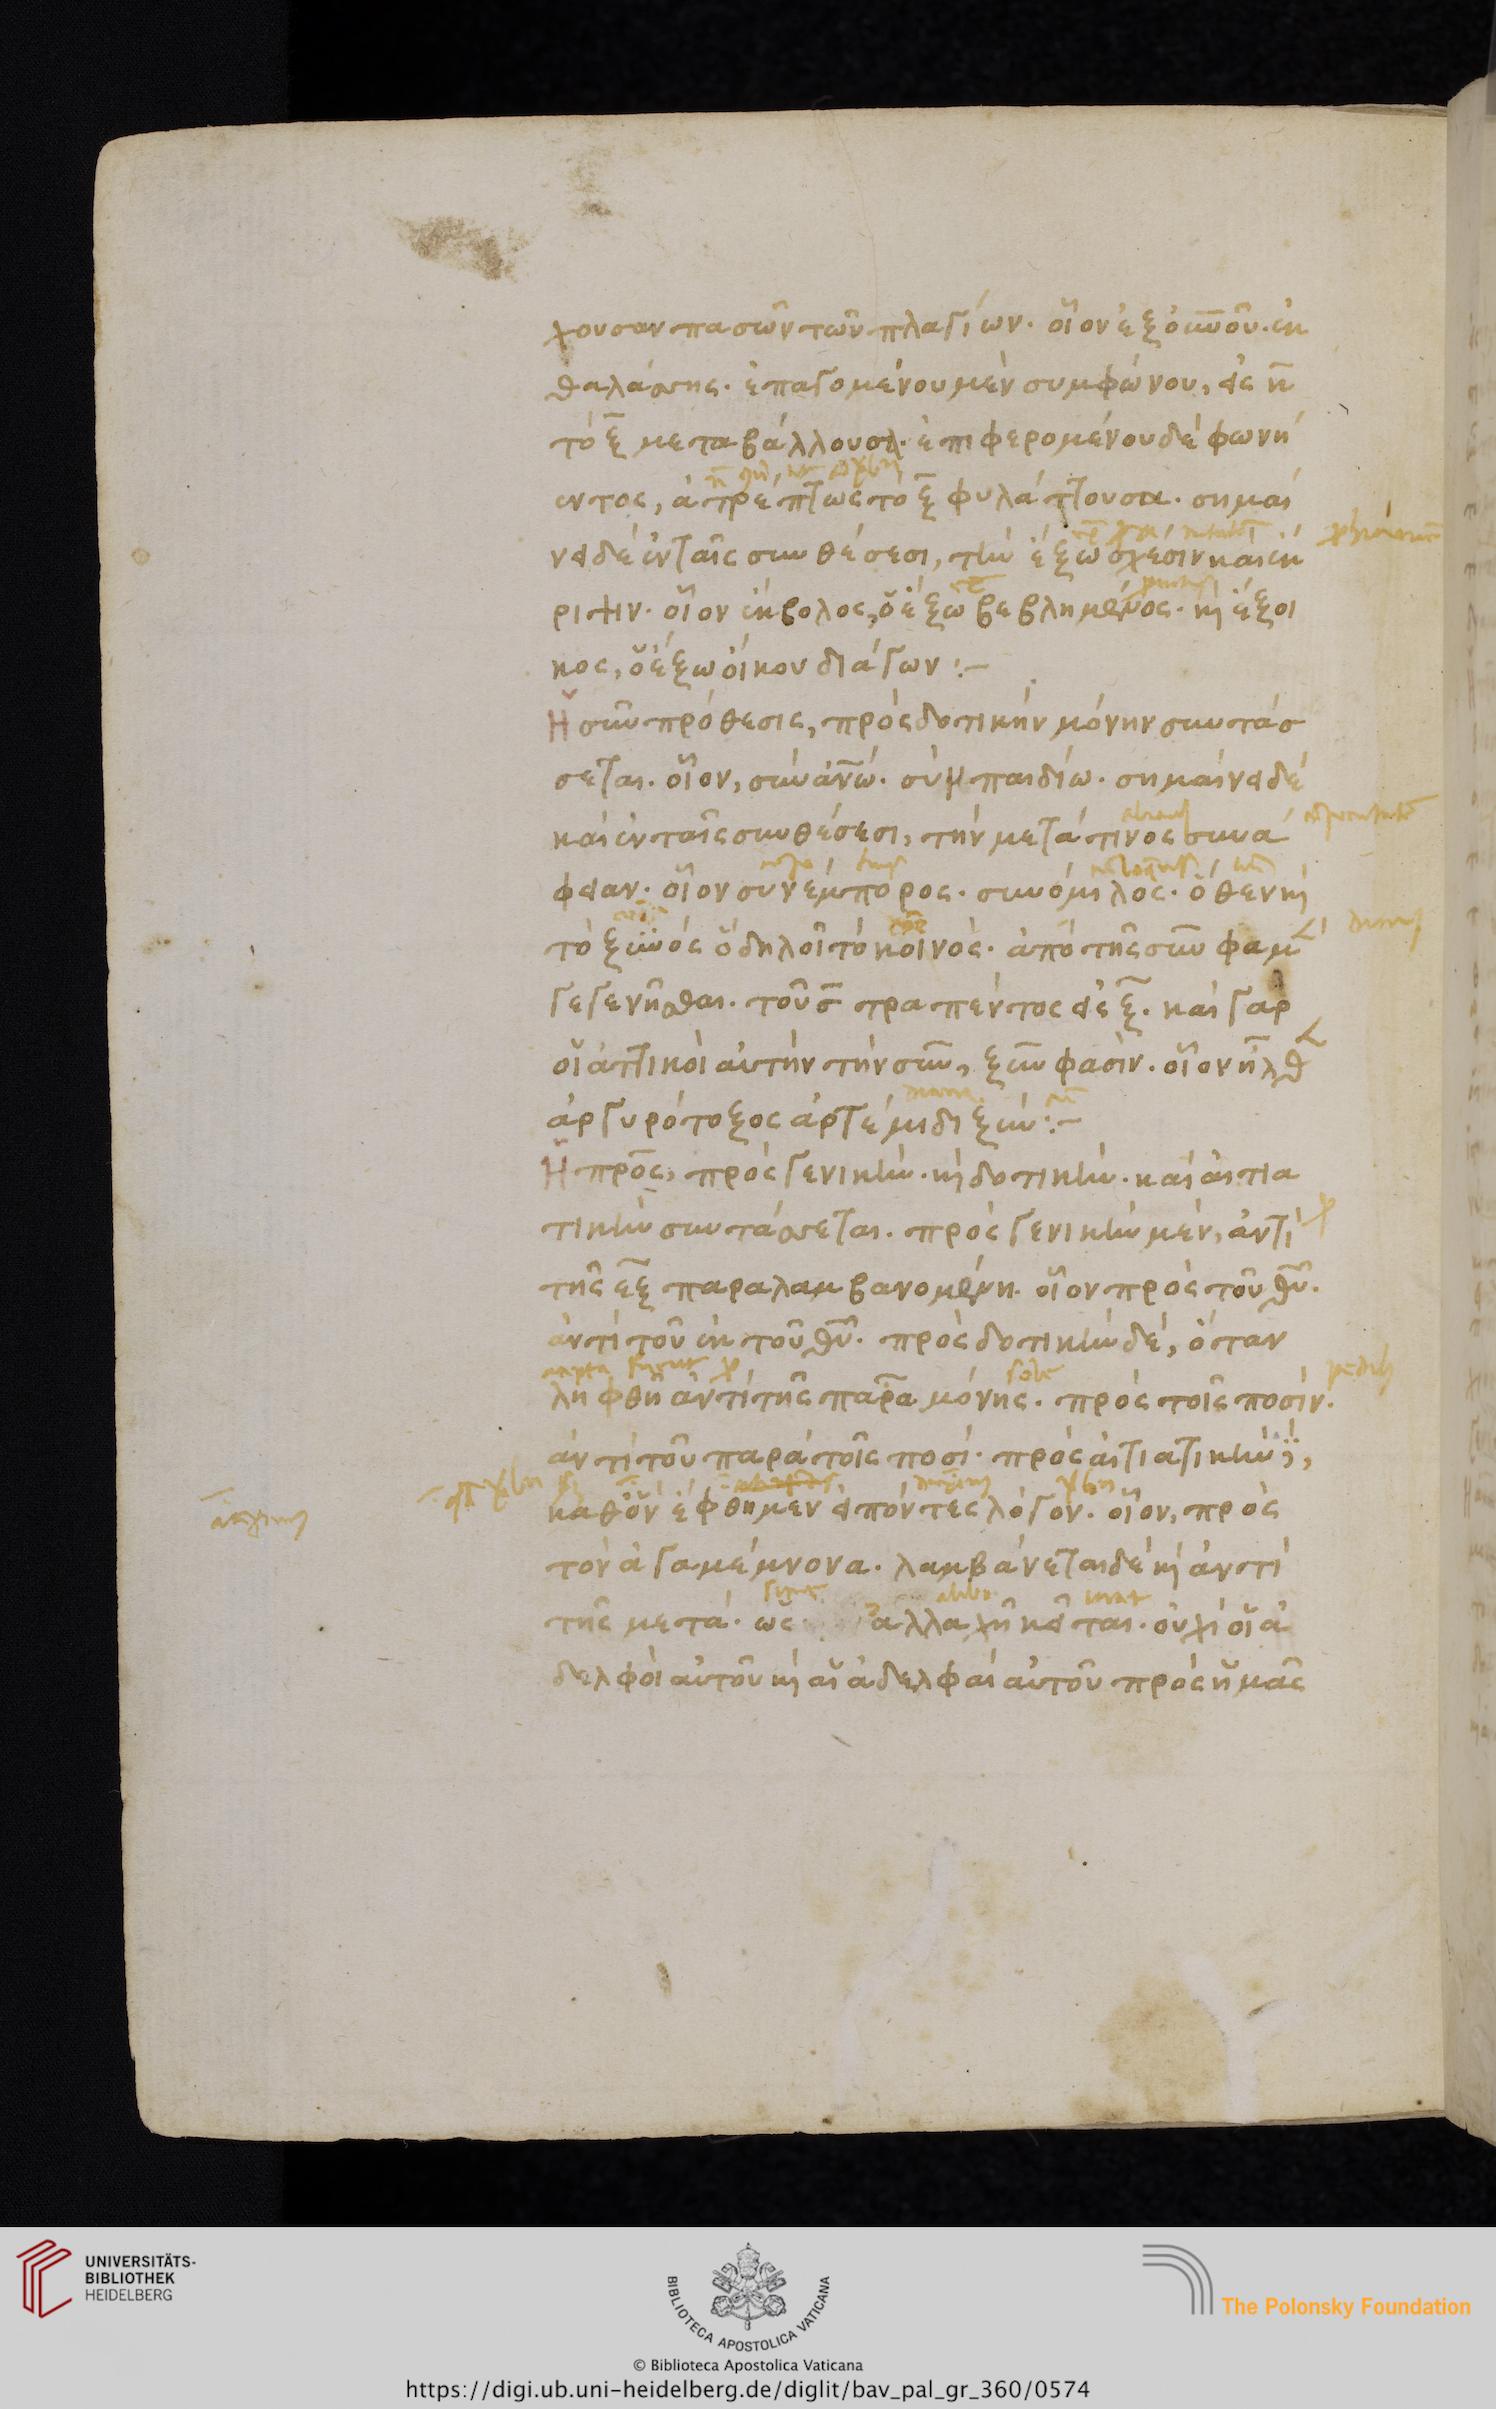 χουσαν πασῶν τῶν πλαγίων· οἷον ἐξ οὐνοῦ· ἐκ
θαλάσσης· ἐπαγομένου μὲν συμφώνου, εἰς κ̄
τὸ ξ̄ μεταβάλλουσα· ἐπιφερομένου δὲ φωνή
εντος, ἀτρέπτως τὸ ξ̄ φυλάττουσα· σημαί
νει δὲ ἐν ταῖς συνθέσεσι, τὴν ἔξω σχέσιν καὶ ἔκ
ρι ιν· οἷον ἔκβολος, ὁ ἔξω βεβλημένος· κὶ ἔξοι
κος, ὁ ἔξω οἴκου διάγων :–
Ἡ σὺν πρόθεσις, πρὸς δοτικὴν μόνην συντάσ
σεται· οἷον, σὺν ἀν̄ω· σὺμ παιδίω· σημαίνει δὲ
καὶ ἐν ταῖς συνθέσεσι, τὴν μετά τινος συνά
φειαν· οἷον συνέμπορος· συνόμιλος· ὅθεν κὶ
τὸ ξυνὸς ὃ δηλοῖ τὸ κοινὸς· ἀπὸ τῆς σὺν φαμ
γεγενῆσθαι· τοῦ σ̄ τραπέντος εἰς ξ̄· καὶ γὰρ
οἱ ἀττικοὶ αὐτὴν τὴν σὺν, ξὺν φασὶν· οἷον ἦλθ
ἀργυρότοξος ἀρτέμιδι ξύν :–
Ἡ πρὸς, πρὸς γενικὴν· κὶ δοτικὴν· καὶ αἰτια
τικὴν συντάσσεται· πρὸς γενικὴν μὲν, ἀντὶ
τῆς ἐξ παραλαμβανομένη· οἷον πρὸς τοῦ θῡ·
ἀντὶ τοῦ ἐκ τοῦ θῡ· πρὸς δοτικὴν δὲ, ὅταν
ληφθῆ ἀντὶ τῆς παρὰ μόνης· πρὸς τοῖς ποσίν·
ἀντὶ τοῦ παρὰ τοῖς ποσί· πρὸς αἰτιατικὴν,
καθ' ὃν ἔφθημεν εἰπόντες λόγον· οἷον, πρὸς
τὸν ἀγαμέμνονα· λαμβάνεται δὲ κὶ ἀντὶ
τῆς μετά· ὡς ἀλλαχῆ κεῖται· οὐχὶ οἱ ἀ
δελφοὶ αὐτοῦ κὶ αἱ ἀδελφαὶ αὐτοῦ πρὸς ἡμᾶς
UNIVERSITÄTS-
BIBLIOTHEK
HEIDELBERG
BIBLIOTECA APOSTOLICA VATICANA
The Polonsky Foundation
© Biblioteca Apostolica Vaticana
https://digi.ub.uni-heidelberg.de/diglit/bav_pal_gr_360/0574